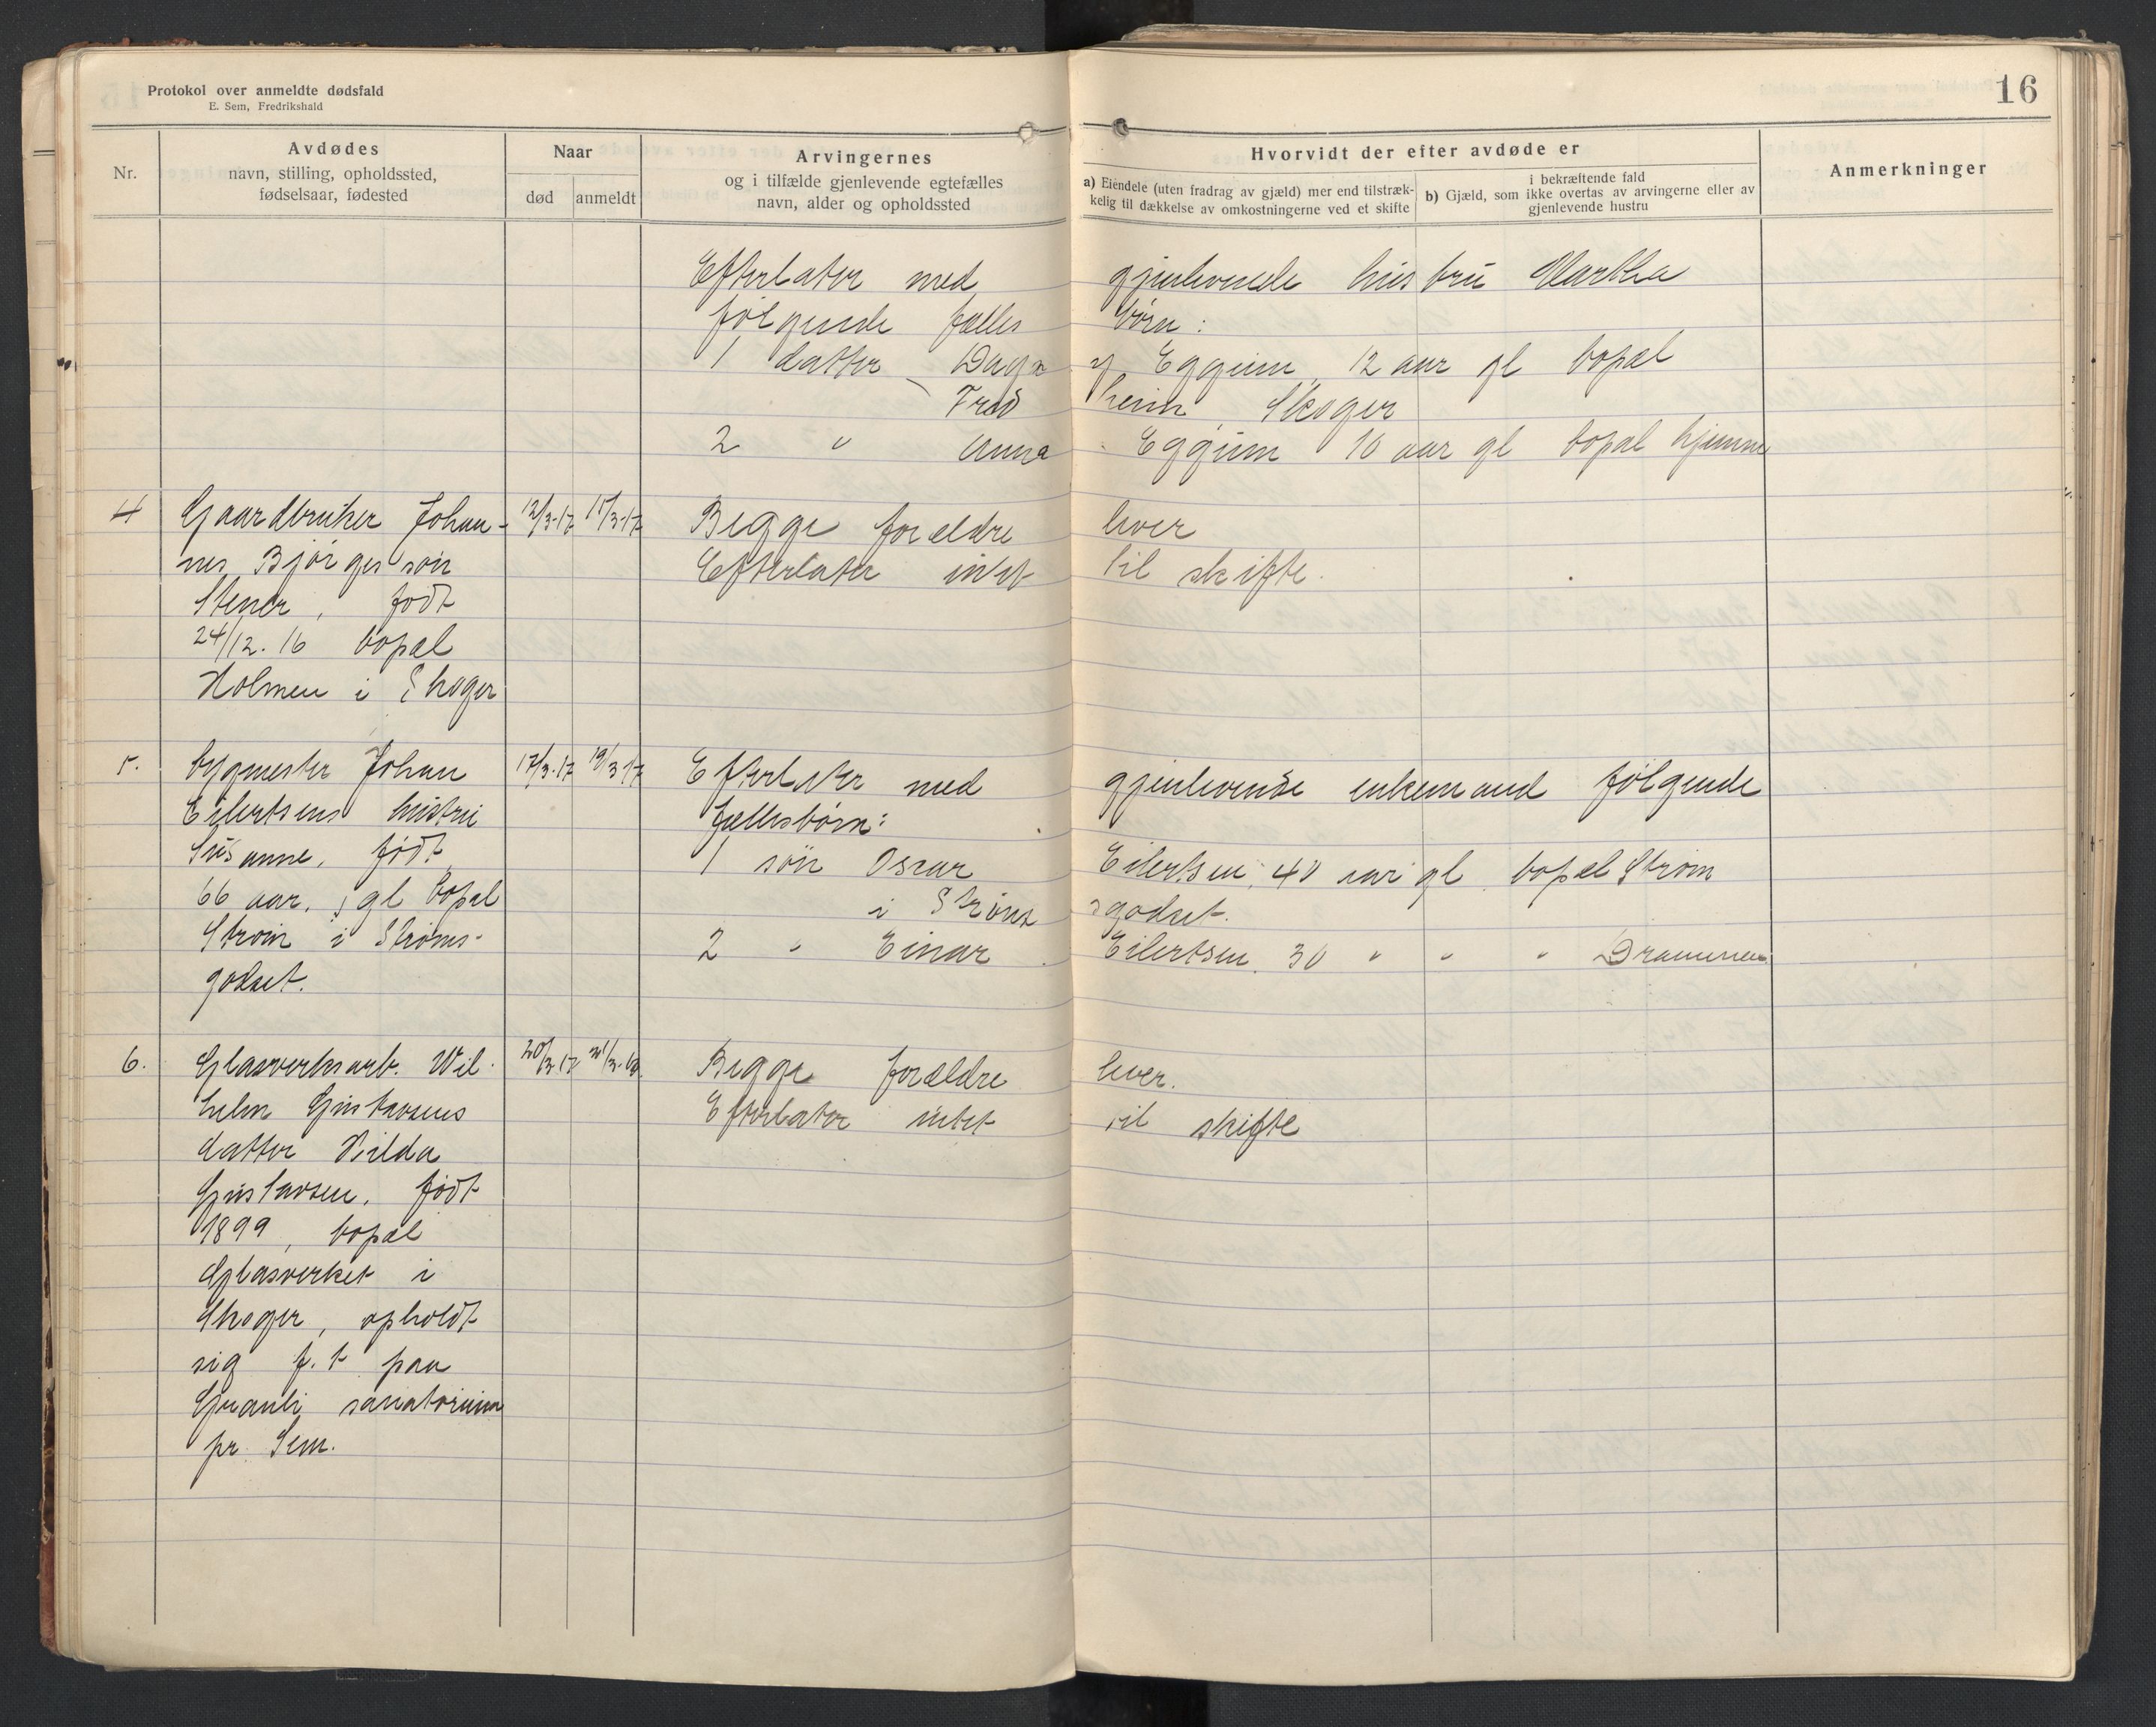 Protokol over anmeldte dødsfald
E. Sem, Fredrikshald
16
Nr.
Avdødes
navn, stilling, opholdssted,
fødselsaar, fødested
Naar
død anmeldt
Arvingernes
og i tilfælde gjenlevende egtefælles
navn, alder og opholdssted
Hvorvidt der efter avdøde er
a) Eiendele (uten fradrag av gjæld) mer end tilstræk-
kelig til dækkelse av omkostningerne ved et skifte
i bekræftende fald
b) Gjæld, som ikke overtas av arvingerne eller av
gjenlevende hustru
Anmerkninger
Efterlater med gjenlevende hustru Martha
følgende fælles børn:
1 datter Dagny Eggum, 12 aar gl bopæl
Trodheim, Skoger
2 " Anna Eggum 10 aar gl bopæl hjemme
4 Gaardbruker Johan- 12/3-17 15/3-17 Begge forældre lever
nes Bjørges søn Efterlater intet til skifte.
Stener, født
24/12.16 bopæl
Holmen i Skoger
5. bygmester Johan 17/3-17 19/3 17 Efterlater med gjenlevende enkemand følgende
Eilertsens hustru fællesbørn:
Susanne, født 1 søn Oscar Eilertsen, 40 aar gl bopæl Strøm
66 aar, gl bopæl i Strømsgodset.
Strøm i Strøms- 2 " Einar Eilertsen 30 " " " Drammen
godset.
6. Glasverksarb. Wil- 20/3-17 21/3-17 Begge forældre lever.
helm Gustavsens Efterlater intet til skifte
datter Hilda
Gustavsen, født
1899, bopæl
Glasverket i
Skoger, opholdt
sig f.t paa
Granli sanatorium
pr. Sem.